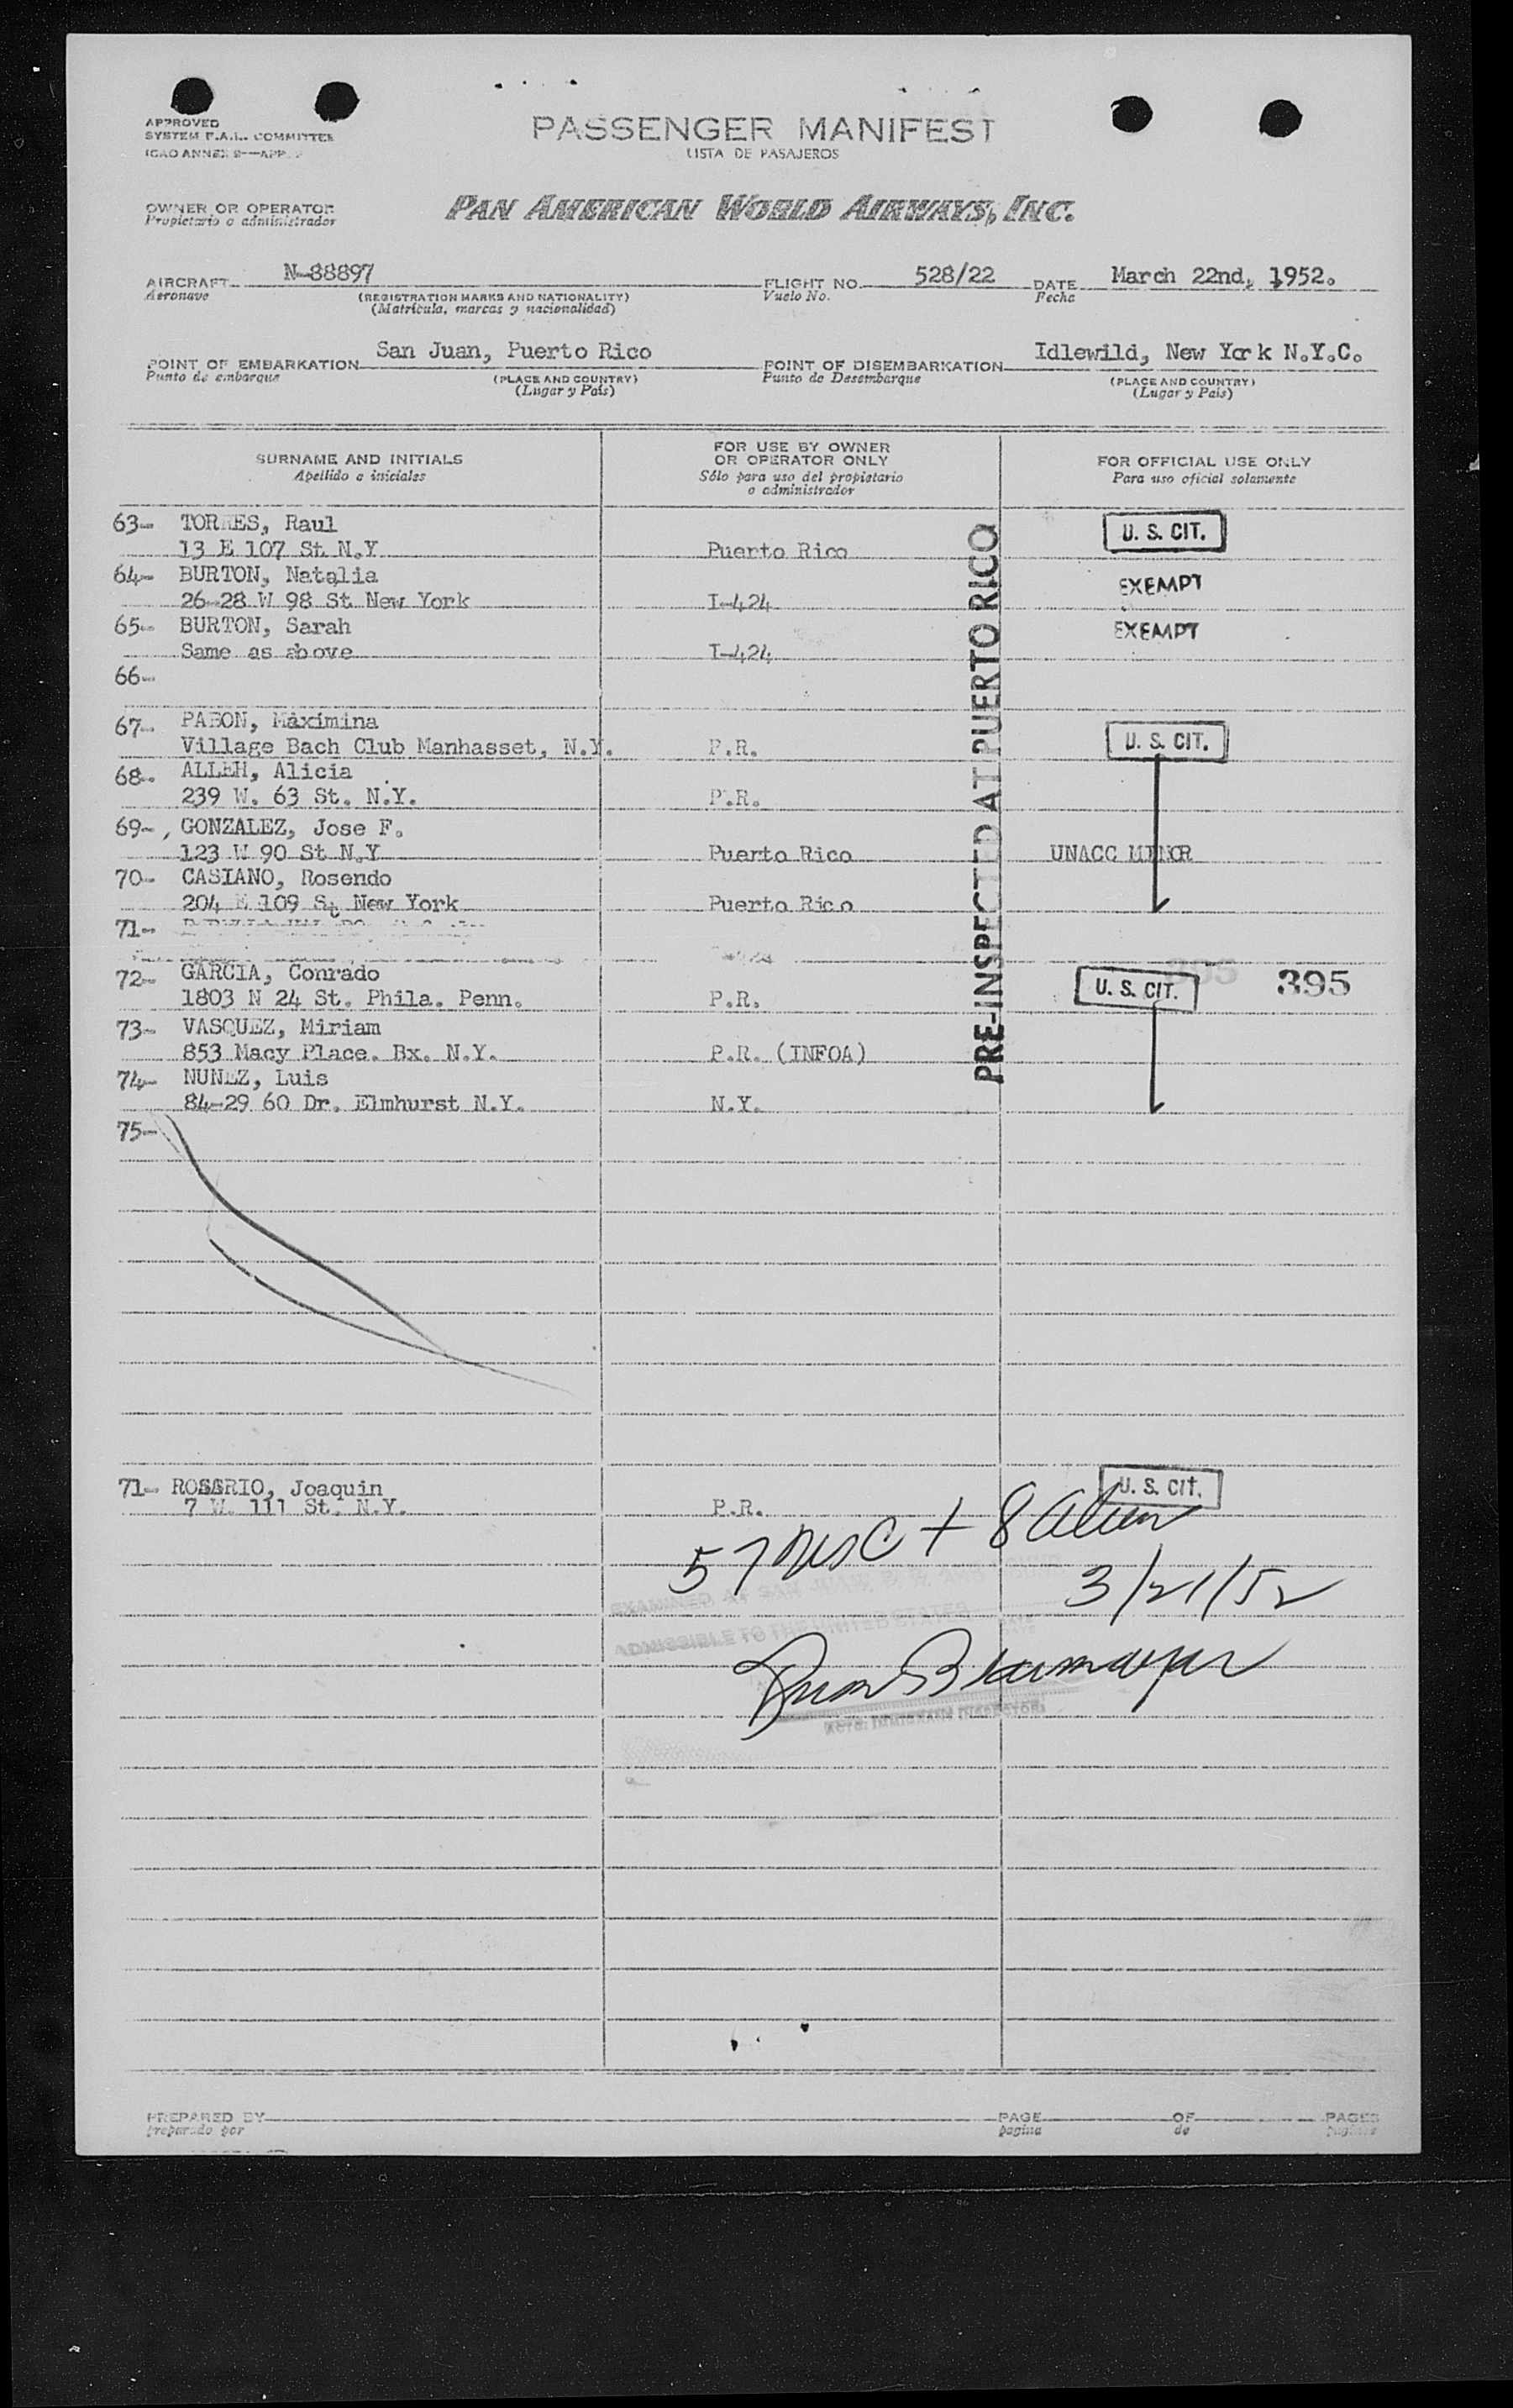 APPROVED
SYSTEM F.A.L. COMMITTEE
ICAO ANNEX 9—APP.
PASSENGER MANIFEST
LISTA DE PASAJEROS
OWNER OR OPERATOR
Propietario o administrador
PAN AMERICAN WORLD AIRWAYS, INC.
AIRCRAFT N-88897 FLIGHT NO. 528/22 DATE March 22nd, 1952.
Aeronave (REGISTRATION MARKS AND NATIONALITY) Vuelo No. Fecha
(Matrícula, marcas y nacionalidad)
POINT OF EMBARKATION San Juan, Puerto Rico POINT OF DISEMBARKATION Idlewild, New York N.Y.C.
Punto de embarque (PLACE AND COUNTRY) Punto de Desembarque (PLACE AND COUNTRY)
(Lugar y País) (Lugar y País)
SURNAME AND INITIALS FOR USE BY OWNER OR OPERATOR ONLY FOR OFFICIAL USE ONLY
Apellido e iniciales Sólo para uso del propietario o administrador Para uso oficial solamente
PRE-INSPECTED AT PUERTO RICO
63- TORRES, Raul U. S. CIT.
13 E 107 St N.Y Puerto Rico
64- BURTON, Natalia EXEMPT
26-28 W 98 St New York I-424
65- BURTON, Sarah EXEMPT
Same as above I-424
66-
67- PABON, Maximina U. S. CIT.
Village Bach Club Manhasset, N.Y. P.R.
68- ALLEH, Alicia
239 W. 63 St. N.Y. P.R.
69- GONZALEZ, Jose F.
123 W 90 St N.Y Puerto Rico UNACC MINOR
70- CASIANO, Rosendo
204 E 109 St New York Puerto Rico
71-
72- GARCIA, Conrado U. S. CIT. 395
1803 N 24 St. Phila. Penn. P.R.
73- VASQUEZ, Miriam
853 Macy Place. Bx. N.Y. P.R. (INFOA)
74- NUNEZ, Luis
84-29 60 Dr. Elmhurst N.Y. N.Y.
75-
71- ROSARIO, Joaquin U. S. CIT.
7 W. 111 St. N.Y. P.R.
57 + 8 alien
3/21/52
EXAMINED AT SAN JUAN
ADMISSIBLE TO THE UNITED STATES
IMMIGRANT INSPECTOR
PREPARED BY PAGE OF PAGES
Preparado por página de páginas